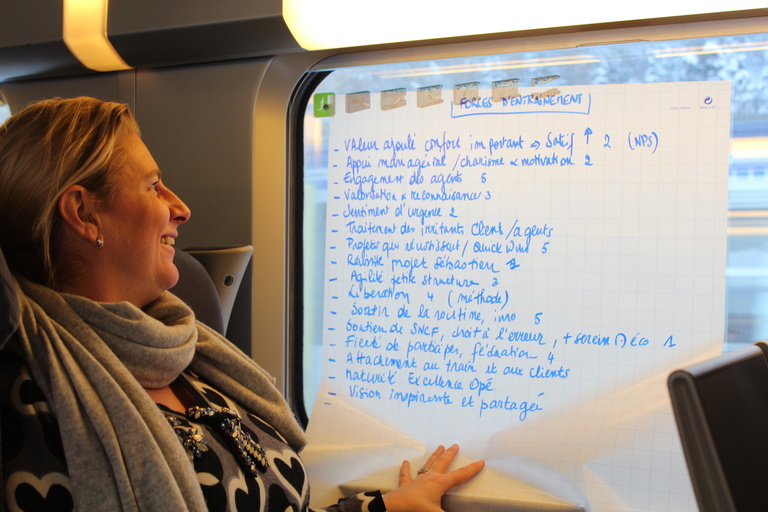 FORCES D'ENTRAÎNEMENT
- Valeur ajouté confort important => Satisf ↑ 2 (NPS)
- Appui managérial / charisme & motivation 2
- Engagement des agents 5
- Valorisation & reconnaissance 3
- Sentiment d'urgence 2
- Traitement des irritants Clients/agents
- Projets qui réussissent / Quick Wins 5
- Réussite projet Sébastien
- Agilité petite structure 3
- Libération 4 (méthode)
- Sortir de la routine, inno 5
- Soutien de SNCF, droit à l'erreur, + serein éco 1
- Fierté de participer, fédération 4
- Attachement au train et aux clients
- Maturité Excellence Opé
- Vision inspirante et partagée
-